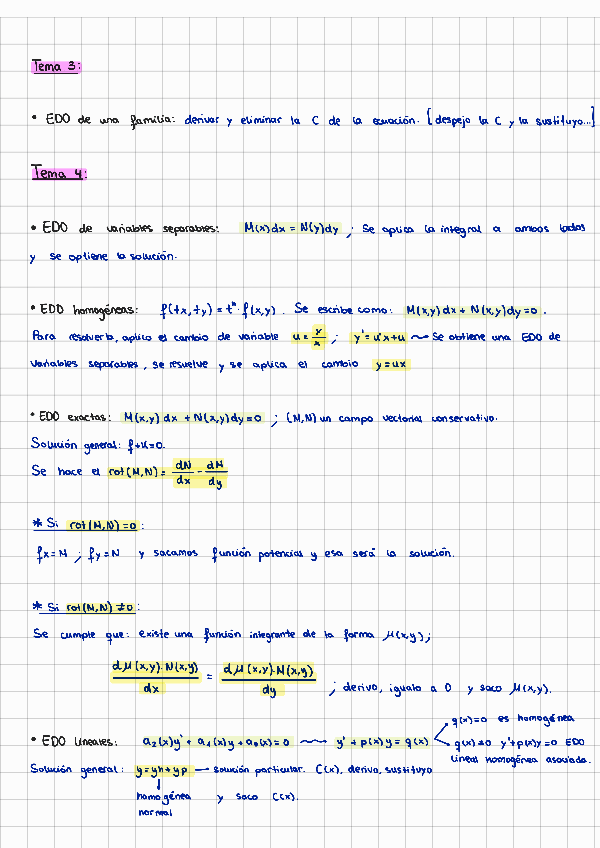 Tema 3:
• EDO de una familia: derivar y eliminar la C de la ecuación. [despejo la C y la sustituyo...]
Tema 4:
• EDO de variables separables: M(x)dx = N(y)dy ; Se aplica la integral a ambos lados
y se optiene la solución.
• EDO homogéneas: f(tx,ty) = tⁿ·f(x,y). Se escribe como: M(x,y)dx + N(x,y)dy = 0.
Para resolverla, aplico el cambio de variable u = y/x ; y' = u'x+u ~ Se obtiene una EDO de
variables separables, se resuelve y se aplica el cambio y = ux
• EDO exactas: M(x,y)dx + N(x,y)dy = 0 ; (M,N) un campo vectorial conservativo.
Solución general: f+K=0.
Se hace el rot(M,N) = dN/dx - dM/dy
* Si rot(M,N) = 0:
fx = M ; fy = N y sacamos función potencial y esa será la solución.
* Si rot(M,N) ≠ 0:
Se cumple que: existe una función integrante de la forma μ(x,y);
dμ(x,y)·N(x,y)/dx = dμ(x,y)·M(x,y)/dy ; derivo, igualo a 0 y saco μ(x,y).
q(x)=0 es homogénea
• EDO lineales: a₂(x)y' + a₁(x)y + a₀(x) = 0 ~ y' + p(x)y = q(x)
q(x)≠0 y'+p(x)y=0 EDO
lineal homogénea asociada.
Solución general: y = yh + yp → solución particular. C(x), derivo, sustituyo
homogénea y saco C(x).
normal